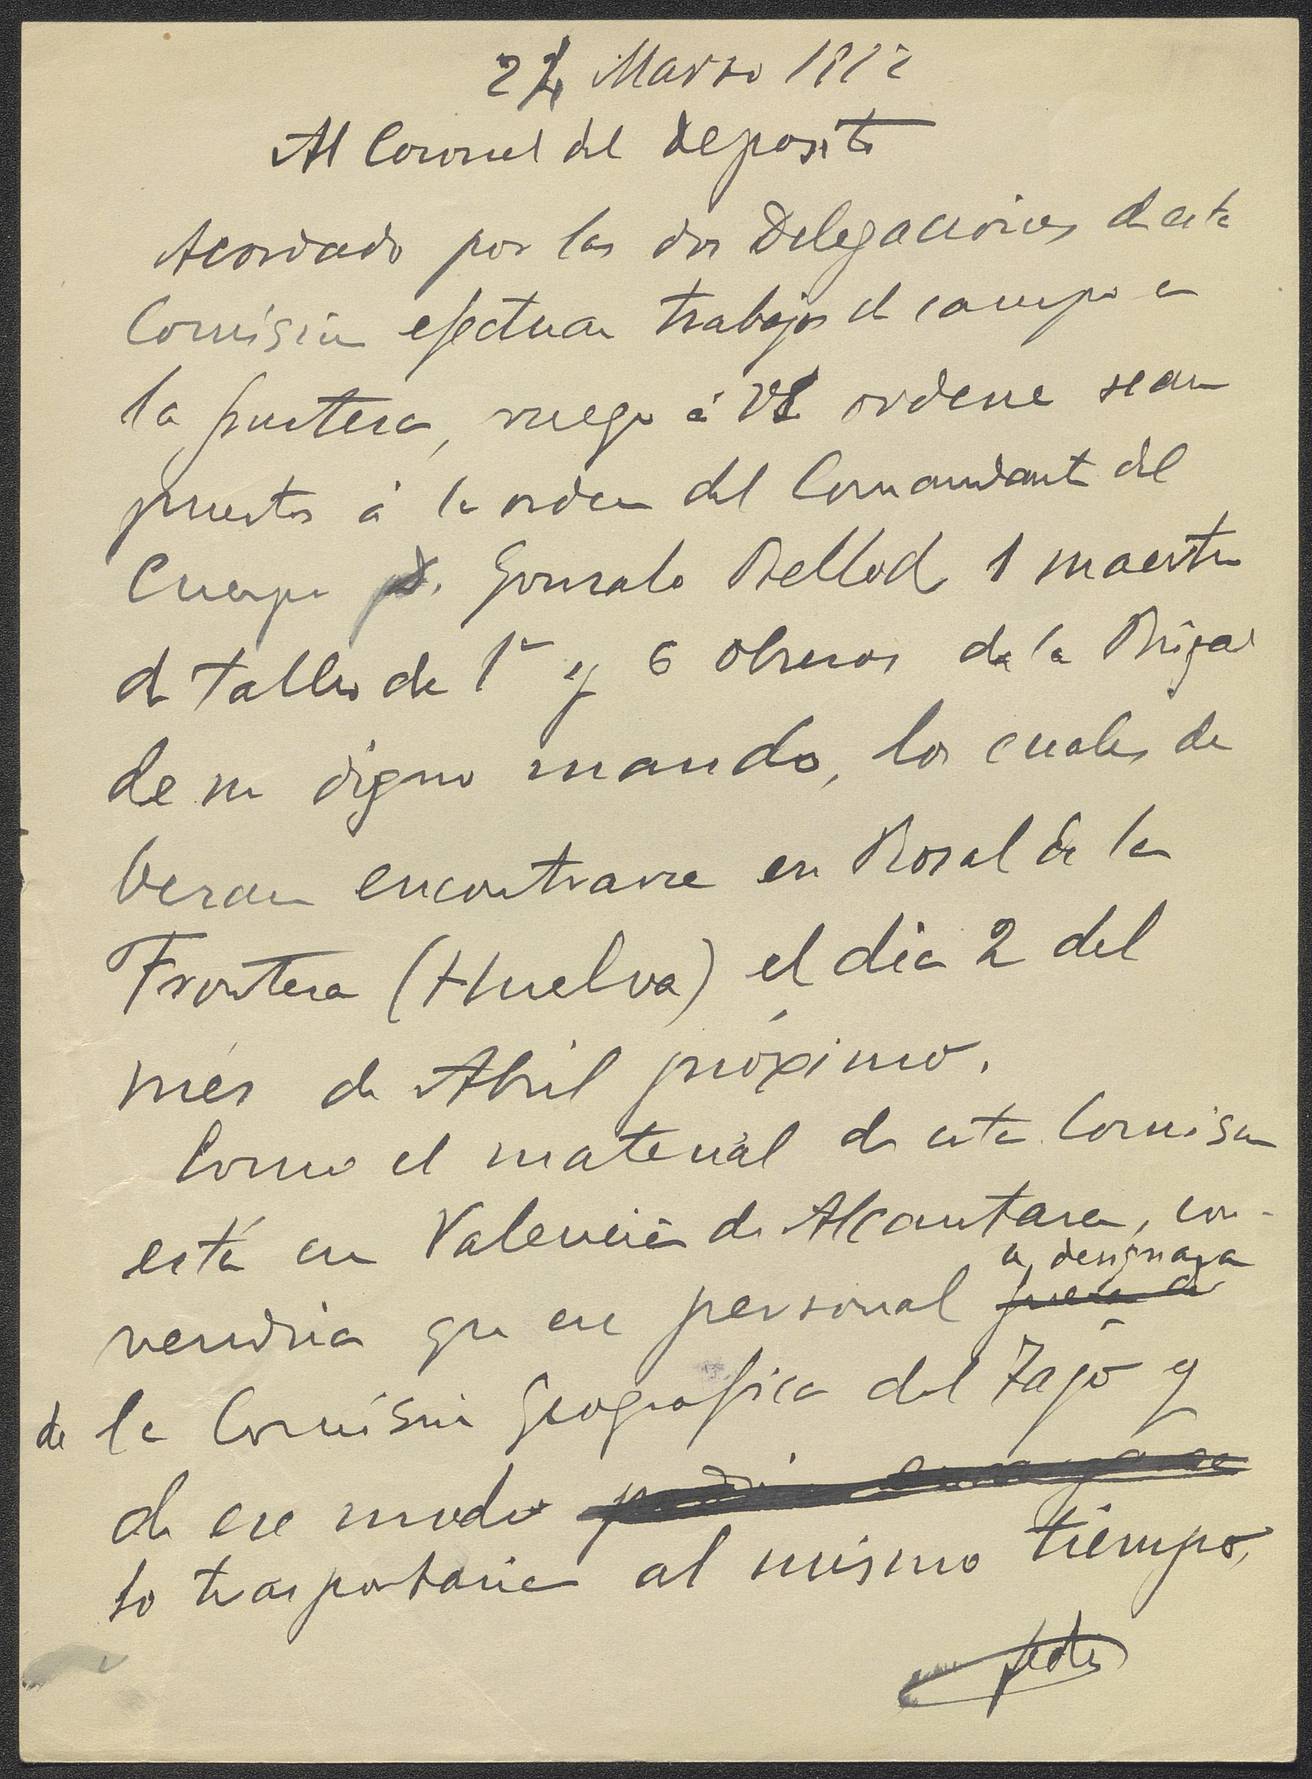 24 Marzo 1912
Al Coronel del deposito
Acordado por las dos Delegaciones de esta
Comisión efectuar trabajos de campo en
la frontera, ruego á VS ordene sean
puestos á la orden del Comandante del
Cuerpo D. Gonzalo Bellod 1 maestro
de taller de 1ª y 6 obreros de la Brigada
de su digno mando, los cuales de
beran encontrarse en Rosal de la
Frontera (Huelva) el dia 2 del
més de Abril próximo.
Como el material de esta Comisión
está en Valencia de Alcantara, con-
vendria que ese personal fuera de
se designara
de la Comisión Geografica del Tajo y
de ese modo
lo trasportarian al mismo tiempo.